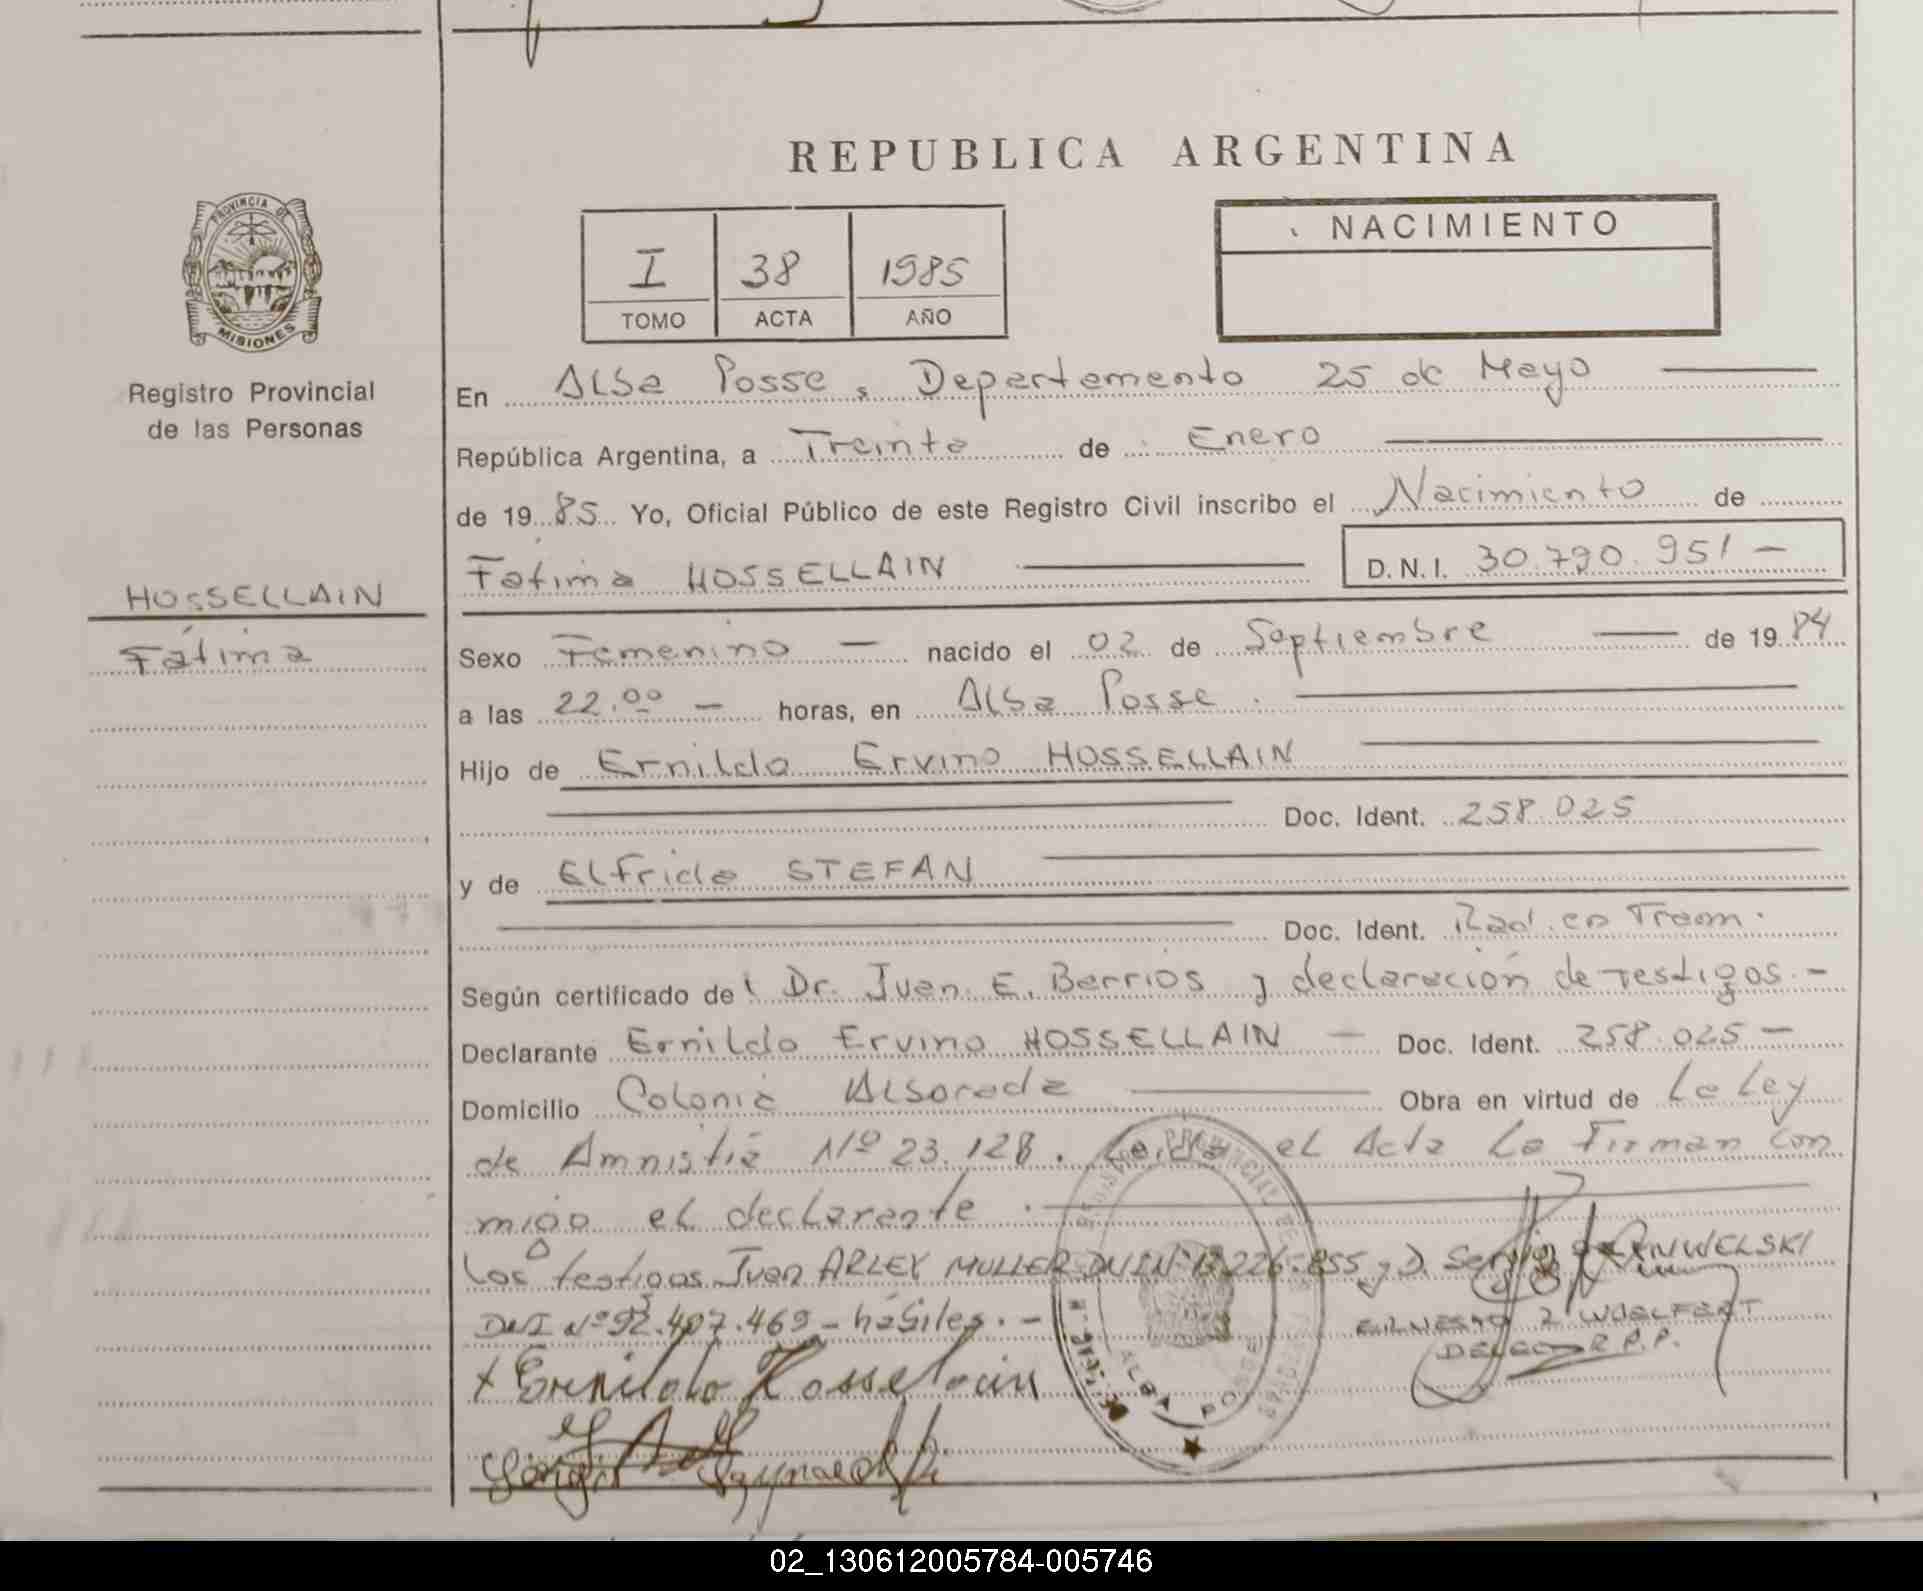 REPUBLICA ARGENTINA
PROVINCIA DE
MISIONES
Registro Provincial
de las Personas
I 38 1985
TOMO ACTA AÑO
NACIMIENTO
En Alba Posse, Departamento 25 de Mayo
República Argentina, a Treinta de Enero
de 1985 Yo, Oficial Público de este Registro Civil inscribo el Nacimiento de
Fatima HOSSELLAIN D.N.I. 30.790.951 —
HOSSELLAIN
Fátima
Sexo Femenino — nacido el 02 de Septiembre — de 1984
a las 22.00 — horas, en Alba Posse.
Hijo de Ernildo Ervino HOSSELLAIN
Doc. Ident. 258.025
y de Elfrida STEFAN
Doc. Ident. Rad. en Tram.
Según certificado de Dr. Juan E. Berrios y declaración de testigos.-
Declarante Ernildo Ervino HOSSELLAIN — Doc. Ident. 258.025 —
Domicilio Colonia Alborada — Obra en virtud de La Ley
de Amnistia Nº 23.128. Leida el Acta La Firman con
migo el declarante.
Los testigos Juan ARLEY MULLER DNI Nº 13.226.855 y D. Sergio
DNI Nº 92.407.469 - hábiles.-
ERNESTO Z WOELFERT
DELEG R.P.P.
x Ernildo Hosselain
Sergio
ALBA POSSE
02_130612005784-005746